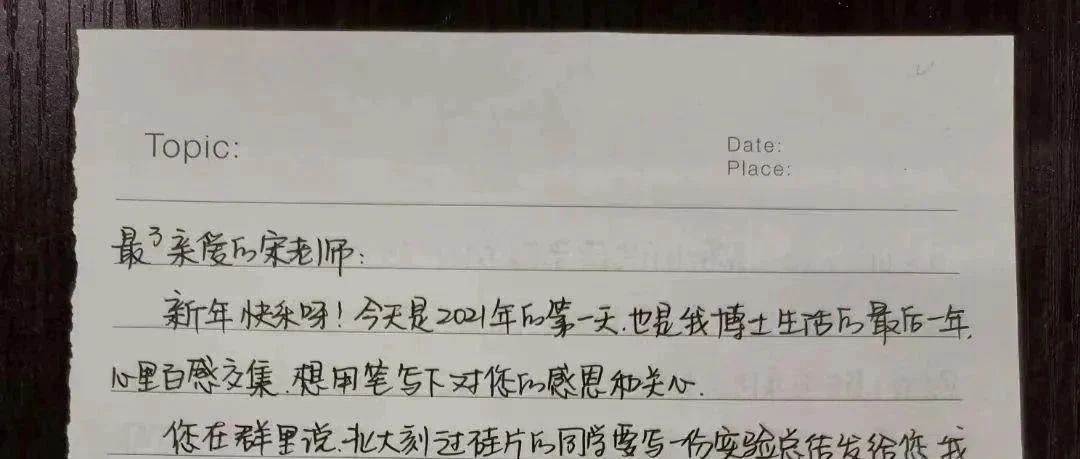 Topic:
Date:
Place:
最³亲爱的宋老师:
新年快乐呀!今天是2021年的第一天,也是我博士生活的最后一年,
心里百感交集,想用笔写下对您的感恩和关心.
您在群里说,北大刻过硅片的同学要写一份实验总结发给您,我